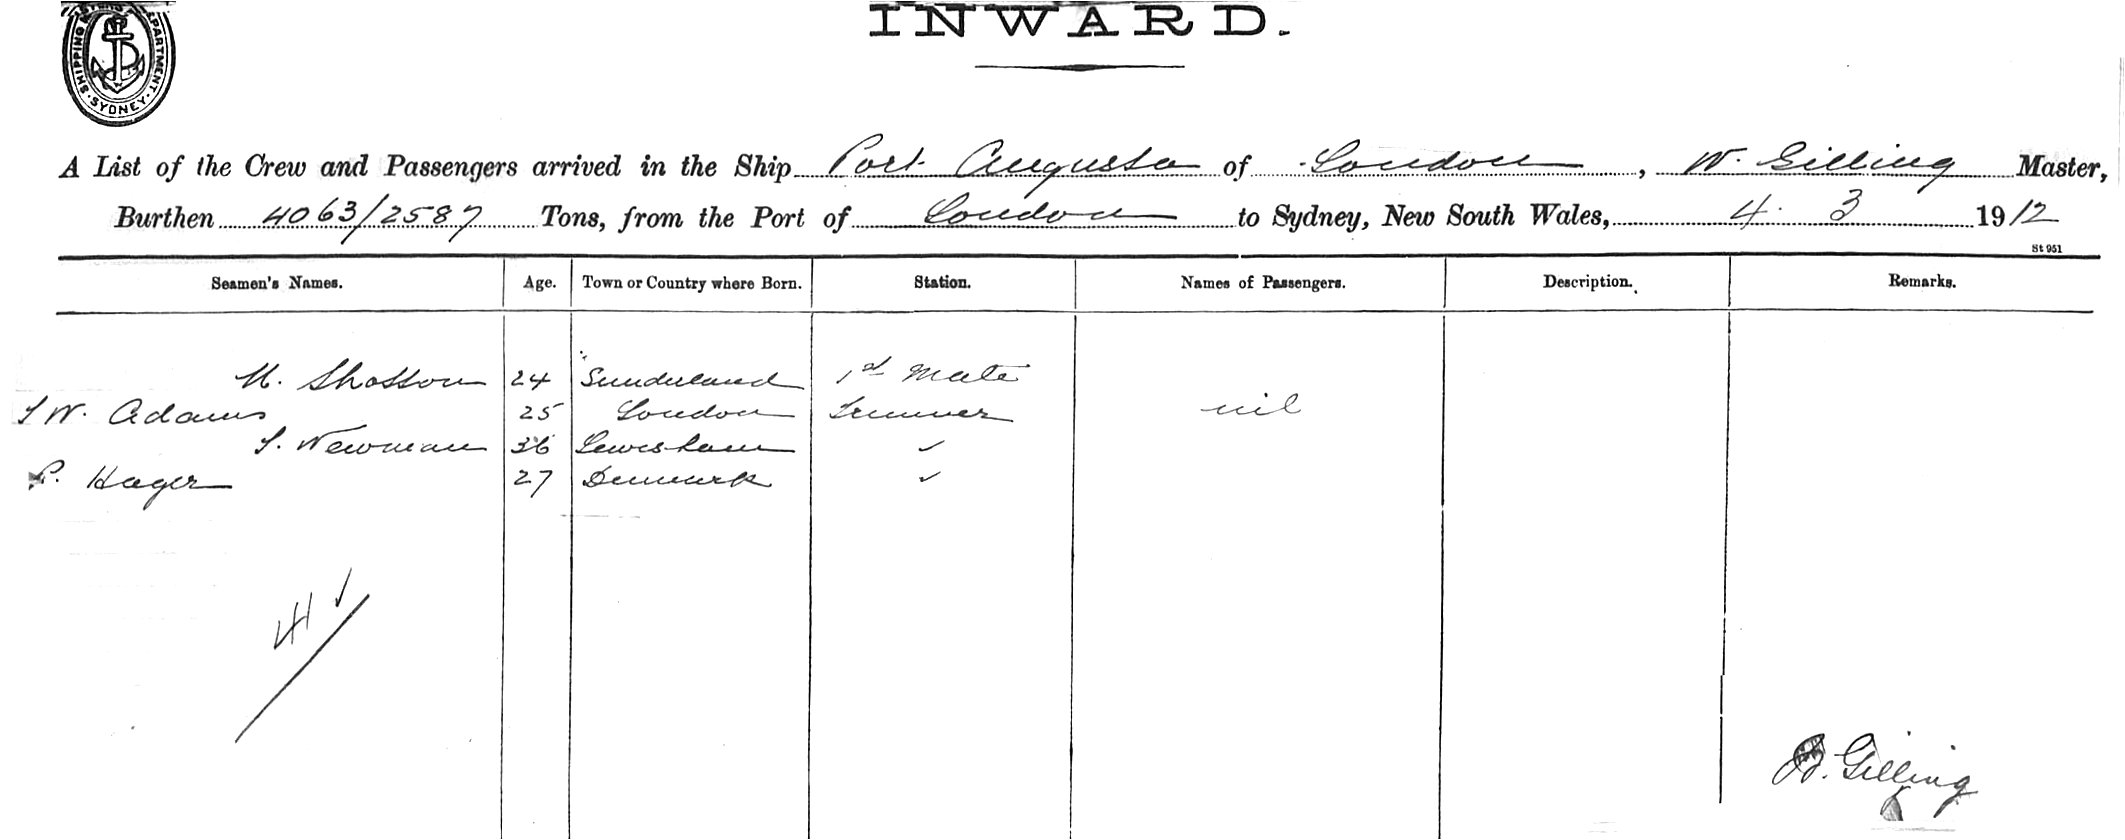 SHIPPING MASTERS DEPARTMENT SYDNEY
INWARD.
A List of the Crew and Passengers arrived in the Ship Port Augusta of London, W. Gilling Master,
Burthen 4063/2587 Tons, from the Port of London to Sydney, New South Wales, 4. 3 1912
St 951
Seamen's Names. Age. Town or Country where Born. Station. Names of Passengers. Description. Remarks.
24 Sunderland 1st Mate
W. Adams 25 London Trimmer nil
Newman 36 Lewisham ✓
P. Hager 27 Denmark ✓
4 ✓
Gilling